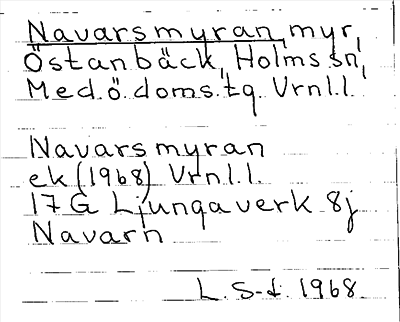 Navarsmyran, myr,
Östanbäck, Holms sn,
Med.ö.doms.tg. Vrnl.l.
Navarsmyran
ek (1968) Vrnl.l.
17 G Ljungaverk 8j
Navarn
L. S-d. 1968